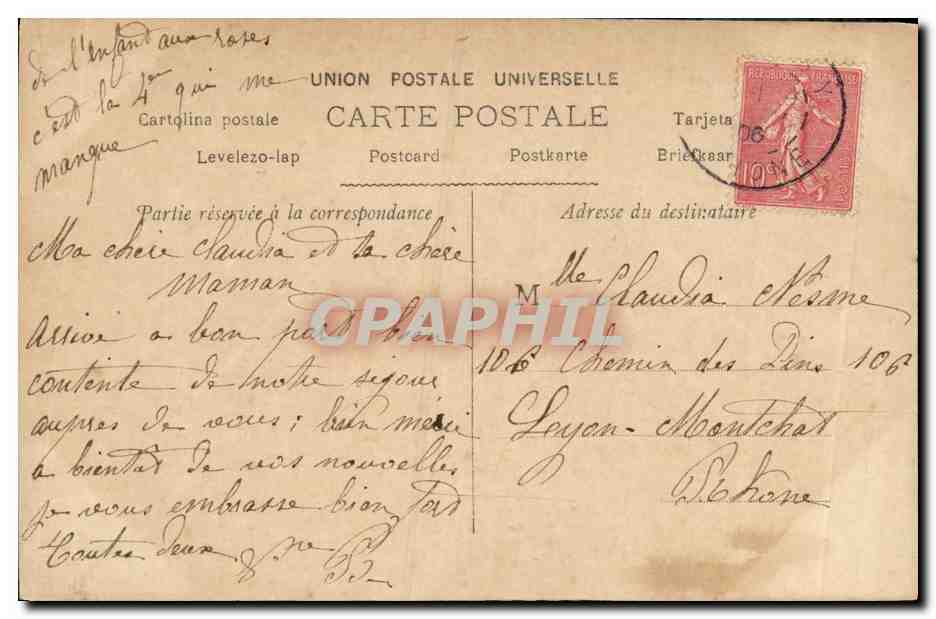 de l'enfant aux roses
c'est la 4e qui me
manque
UNION POSTALE UNIVERSELLE
CARTE POSTALE
Cartolina postale
Tarjeta
Levelezo-lap
Postcard
Postkarte
Briefkaar
REPUBLIQUE FRANÇAISE
10
06
Partie réservée à la correspondance
Ma chère Claudia et ta chère
maman
arrivé a bon port bien
contente de notre sejour
aupres de vous; bien merci
a bientôt de vos nouvelles
je vous embrasse bien fort
toutes deux
Adresse du destinataire
Mlle Claudia Nesme
106 Chemin des Pins 106
Lyon-Montchat
Rhone
CPAPHIL